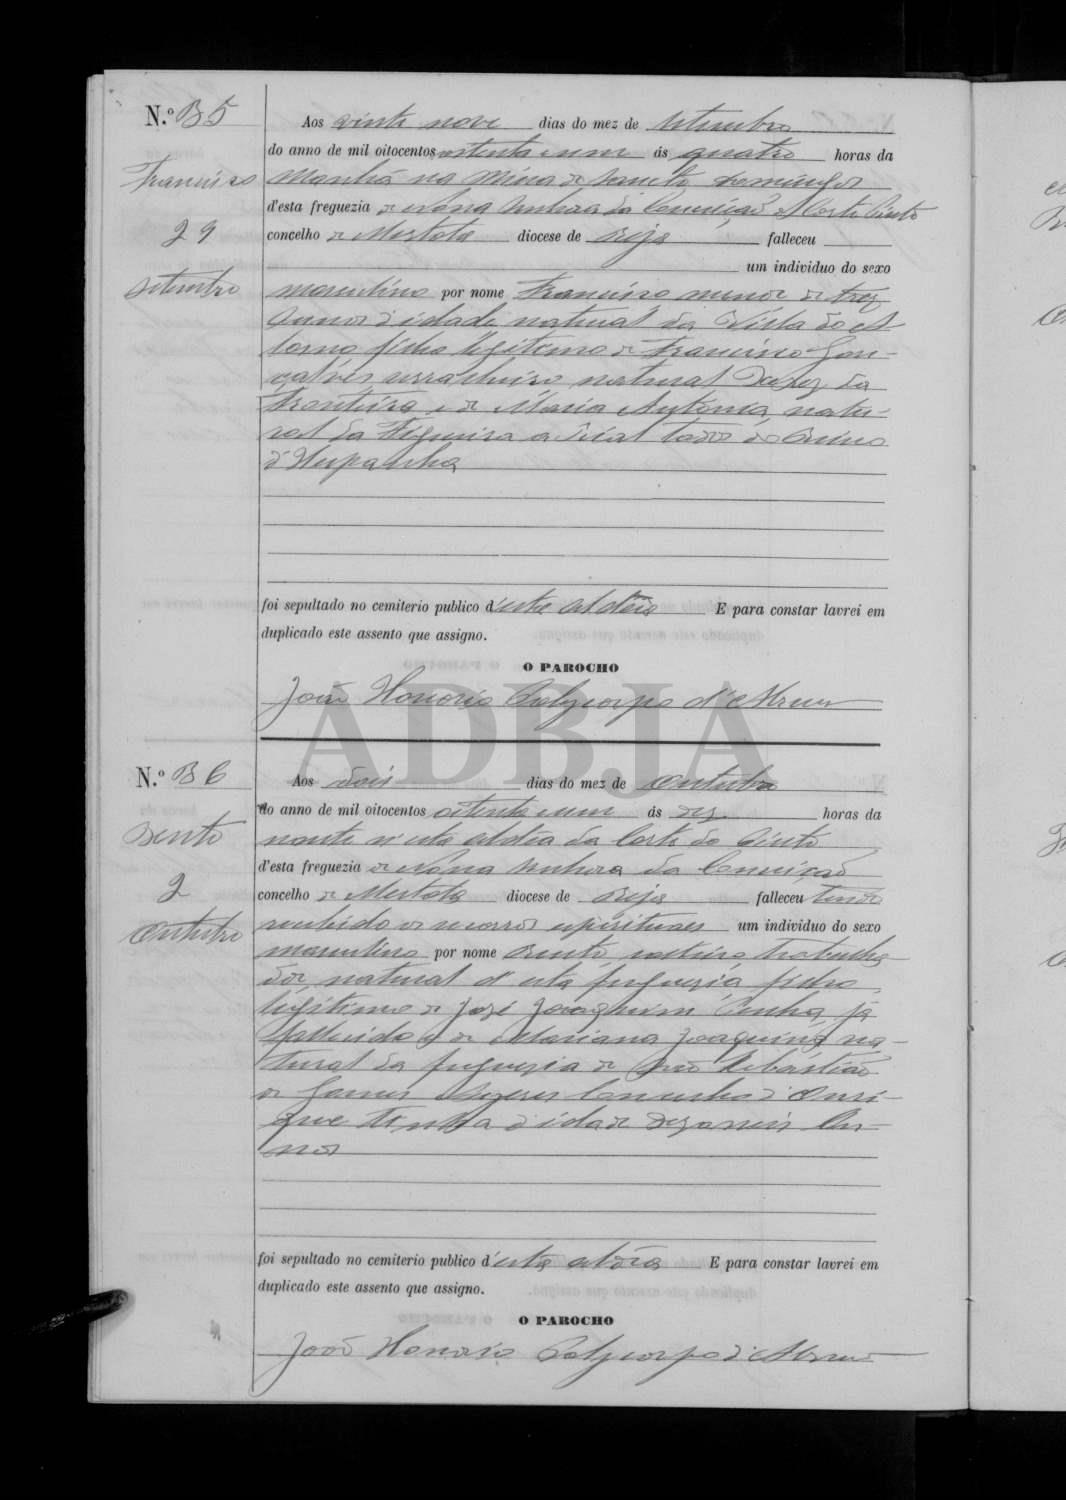 N.º 35
Francisco
29
Setembro
Aos vinte nove dias do mez de Setembro
do anno de mil oitocentos oitenta e um ás quatro horas da
Manhã na Mina de Sancto Domingos
d'esta freguezia de Nossa Senhora da Conceição de Corte Pinto
concelho de Mertola diocese de Beja falleceu
um individuo do sexo
masculino por nome Francisco menor de trez
annos d'idade natural da
filho legitimo de Francisco Gon-
çalves natural Xerez da
Fronteira e de Maria Antonia, natu-
ral da Figueira a Real todos do Reino
d'Hespanha
foi sepultado no cemiterio publico d'esta Aldeia E para constar lavrei em
duplicado este assento que assigno.
O PAROCHO
João Honorio Polycarpo d'Abreu
ADBJA
N.º 36
Bento
2
Outubro
Aos dois dias do mez de Outubro
do anno de mil oitocentos oitenta e um ás dez horas da
noute n'esta Aldêa da Corte do Pinto
d'esta freguezia de Nossa Senhora da Conceição
concelho de Mertola diocese de Beja falleceu tendo
recebido os socorros espirituaes um individuo do sexo
masculino por nome Bento, solteiro trabalha-
dor, natural d'esta freguezia, filho
legitimo de José Joaquim Penha, já
fallecido e de Marianna Joaquina, na-
tural da freguezia de São Sebastião
de Gomes Ayres Concelho d'Ouri-
que tinha d'idade dezaseis An-
nos
foi sepultado no cemiterio publico d'esta aldêa E para constar lavrei em
duplicado este assento que assigno.
O PAROCHO
João Honorio Polycarpo d'Abreu